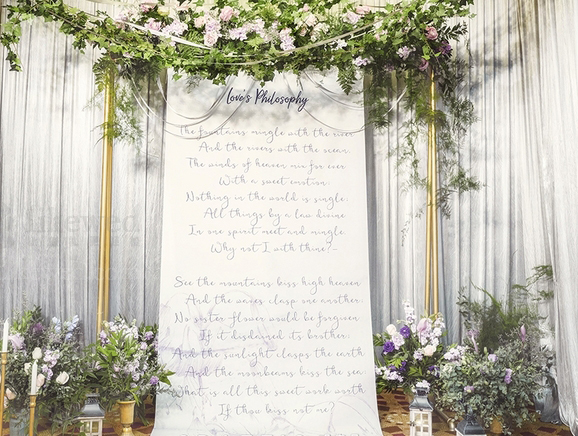 Love's Philosophy
The fountains mingle with the river
And the rivers with the ocean.
The winds of heaven mix for ever
With a sweet emotion;
Nothing in the world is single;
All things by a law divine
In one spirit meet and mingle.
Why not I with thine?—
See the mountains kiss high heaven
And the waves clasp one another;
No sister-flower would be forgiven
If it disdained its brother;
And the sunlight clasps the earth
And the moonbeams kiss the sea:
What is all this sweet work worth
If thou kiss not me?